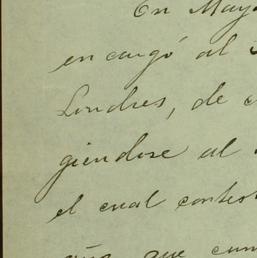 En Mayo
encargó al
Londres, de
giendose al
el cual contest
que cum